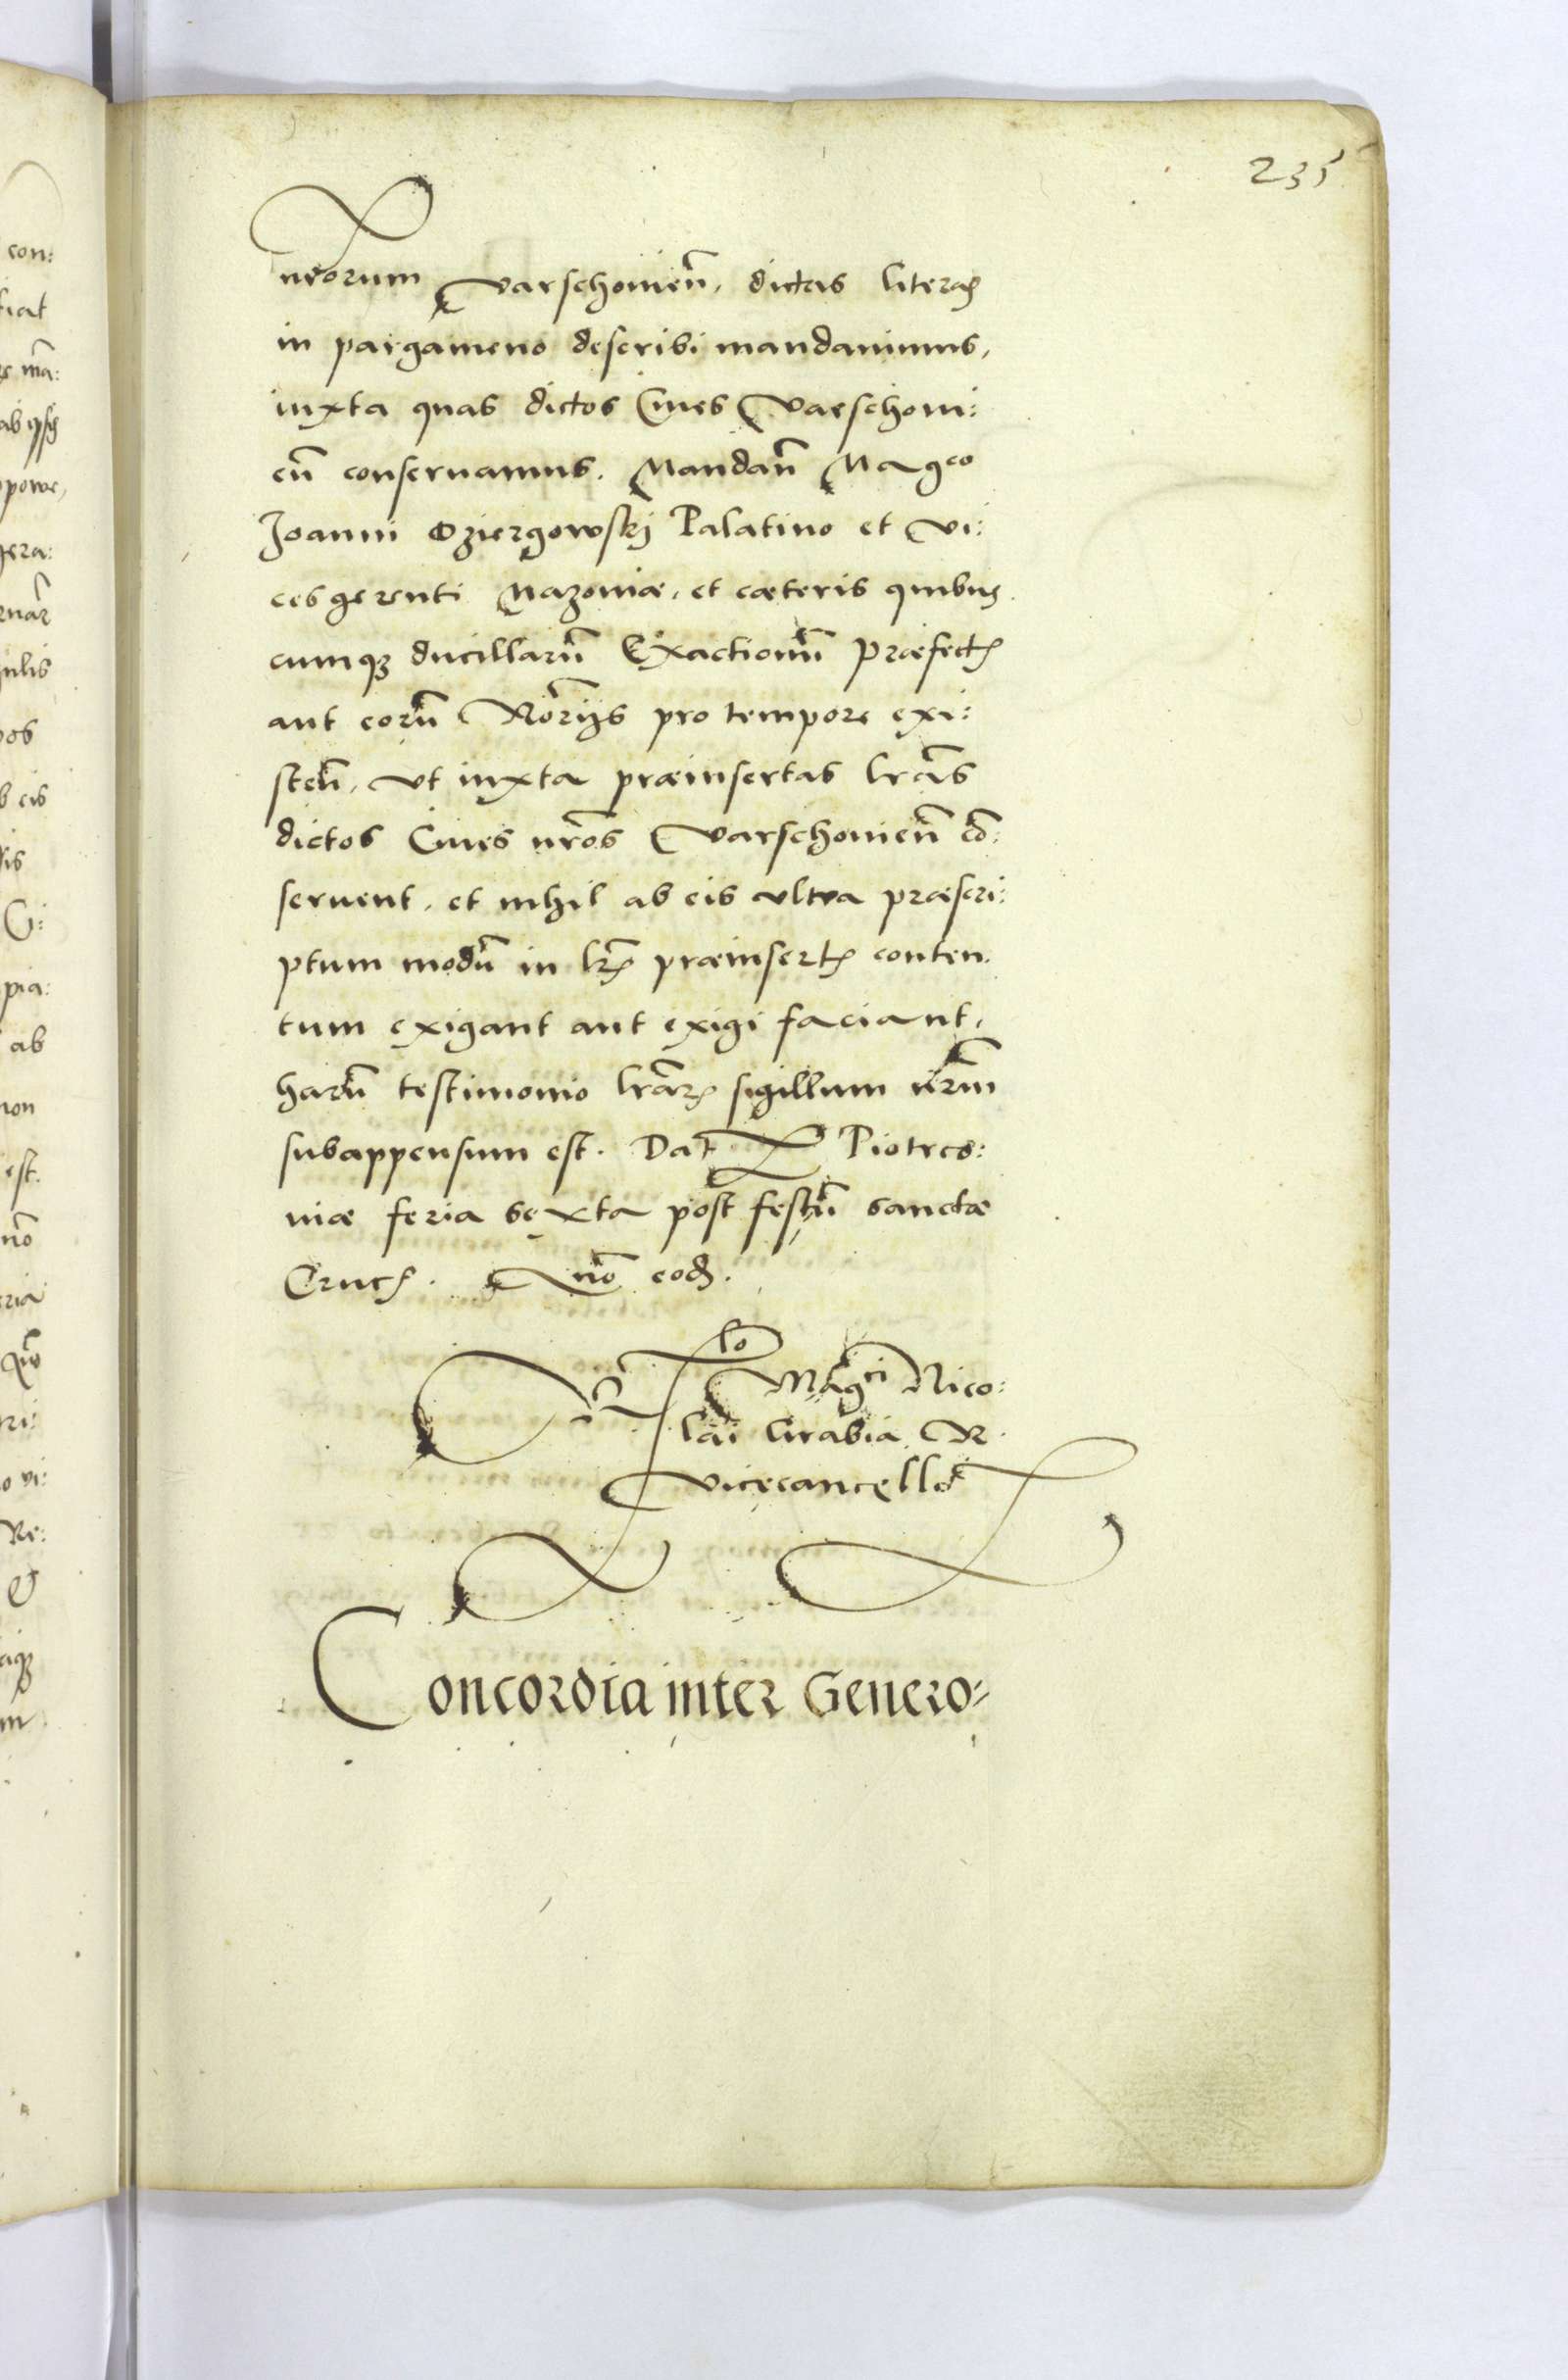 235
nr̃orum Varschovien̄, dictas literas
in pargameno describi mandavimus,
iuxta quas dictos Cives Varschovi:
en̄ conservamus. Mandan̄ Mag^co
Joanni Dziergowskj Palatino et Vi:
cesgerenti Mazoviæ, et cæteris quibus
cumq₃ ducillarū Exactionū Præfectis
aut eorū Notarijs pro tempore exi:
sten̄, ut iuxta præinsertas lr̃as
dictos Cives nr̃os Varschovien̄ cō:
servent, et nihil ab eis ultra præscri:
ptum modū in lr̃is præinsertis conten
tum exigant aut exigi faciant,
harū testimonio lr̃ar̃ sigillum nr̃m
subappensum est. Dat Piotrco:
viæ feria sexta post festū sanctæ
Crucis. Anō eod̃.
Rlõ Mag^ci Nico:
lai Grabia R
Vicecancell
Concordia inter Genero-
con:
fiat
mā:
pera:
pulis
pos
eis
sis
G:
pia:
ab
non
est.
nō
ria
ri:
o vi:
Re:
m